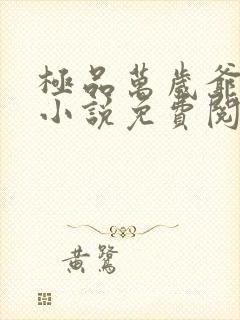 極品萬歲爺
小說免費閱
黃鷺